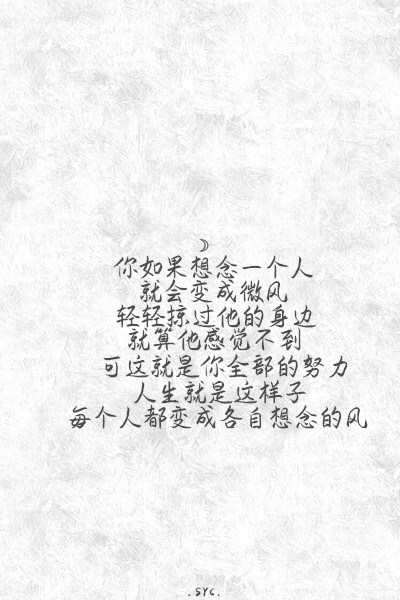 ☽
你如果想念一个人
就会变成微风
轻轻掠过他的身边
就算他感觉不到
可这就是你全部的努力
人生就是这样子
每个人都变成各自想念的风
. SYC.